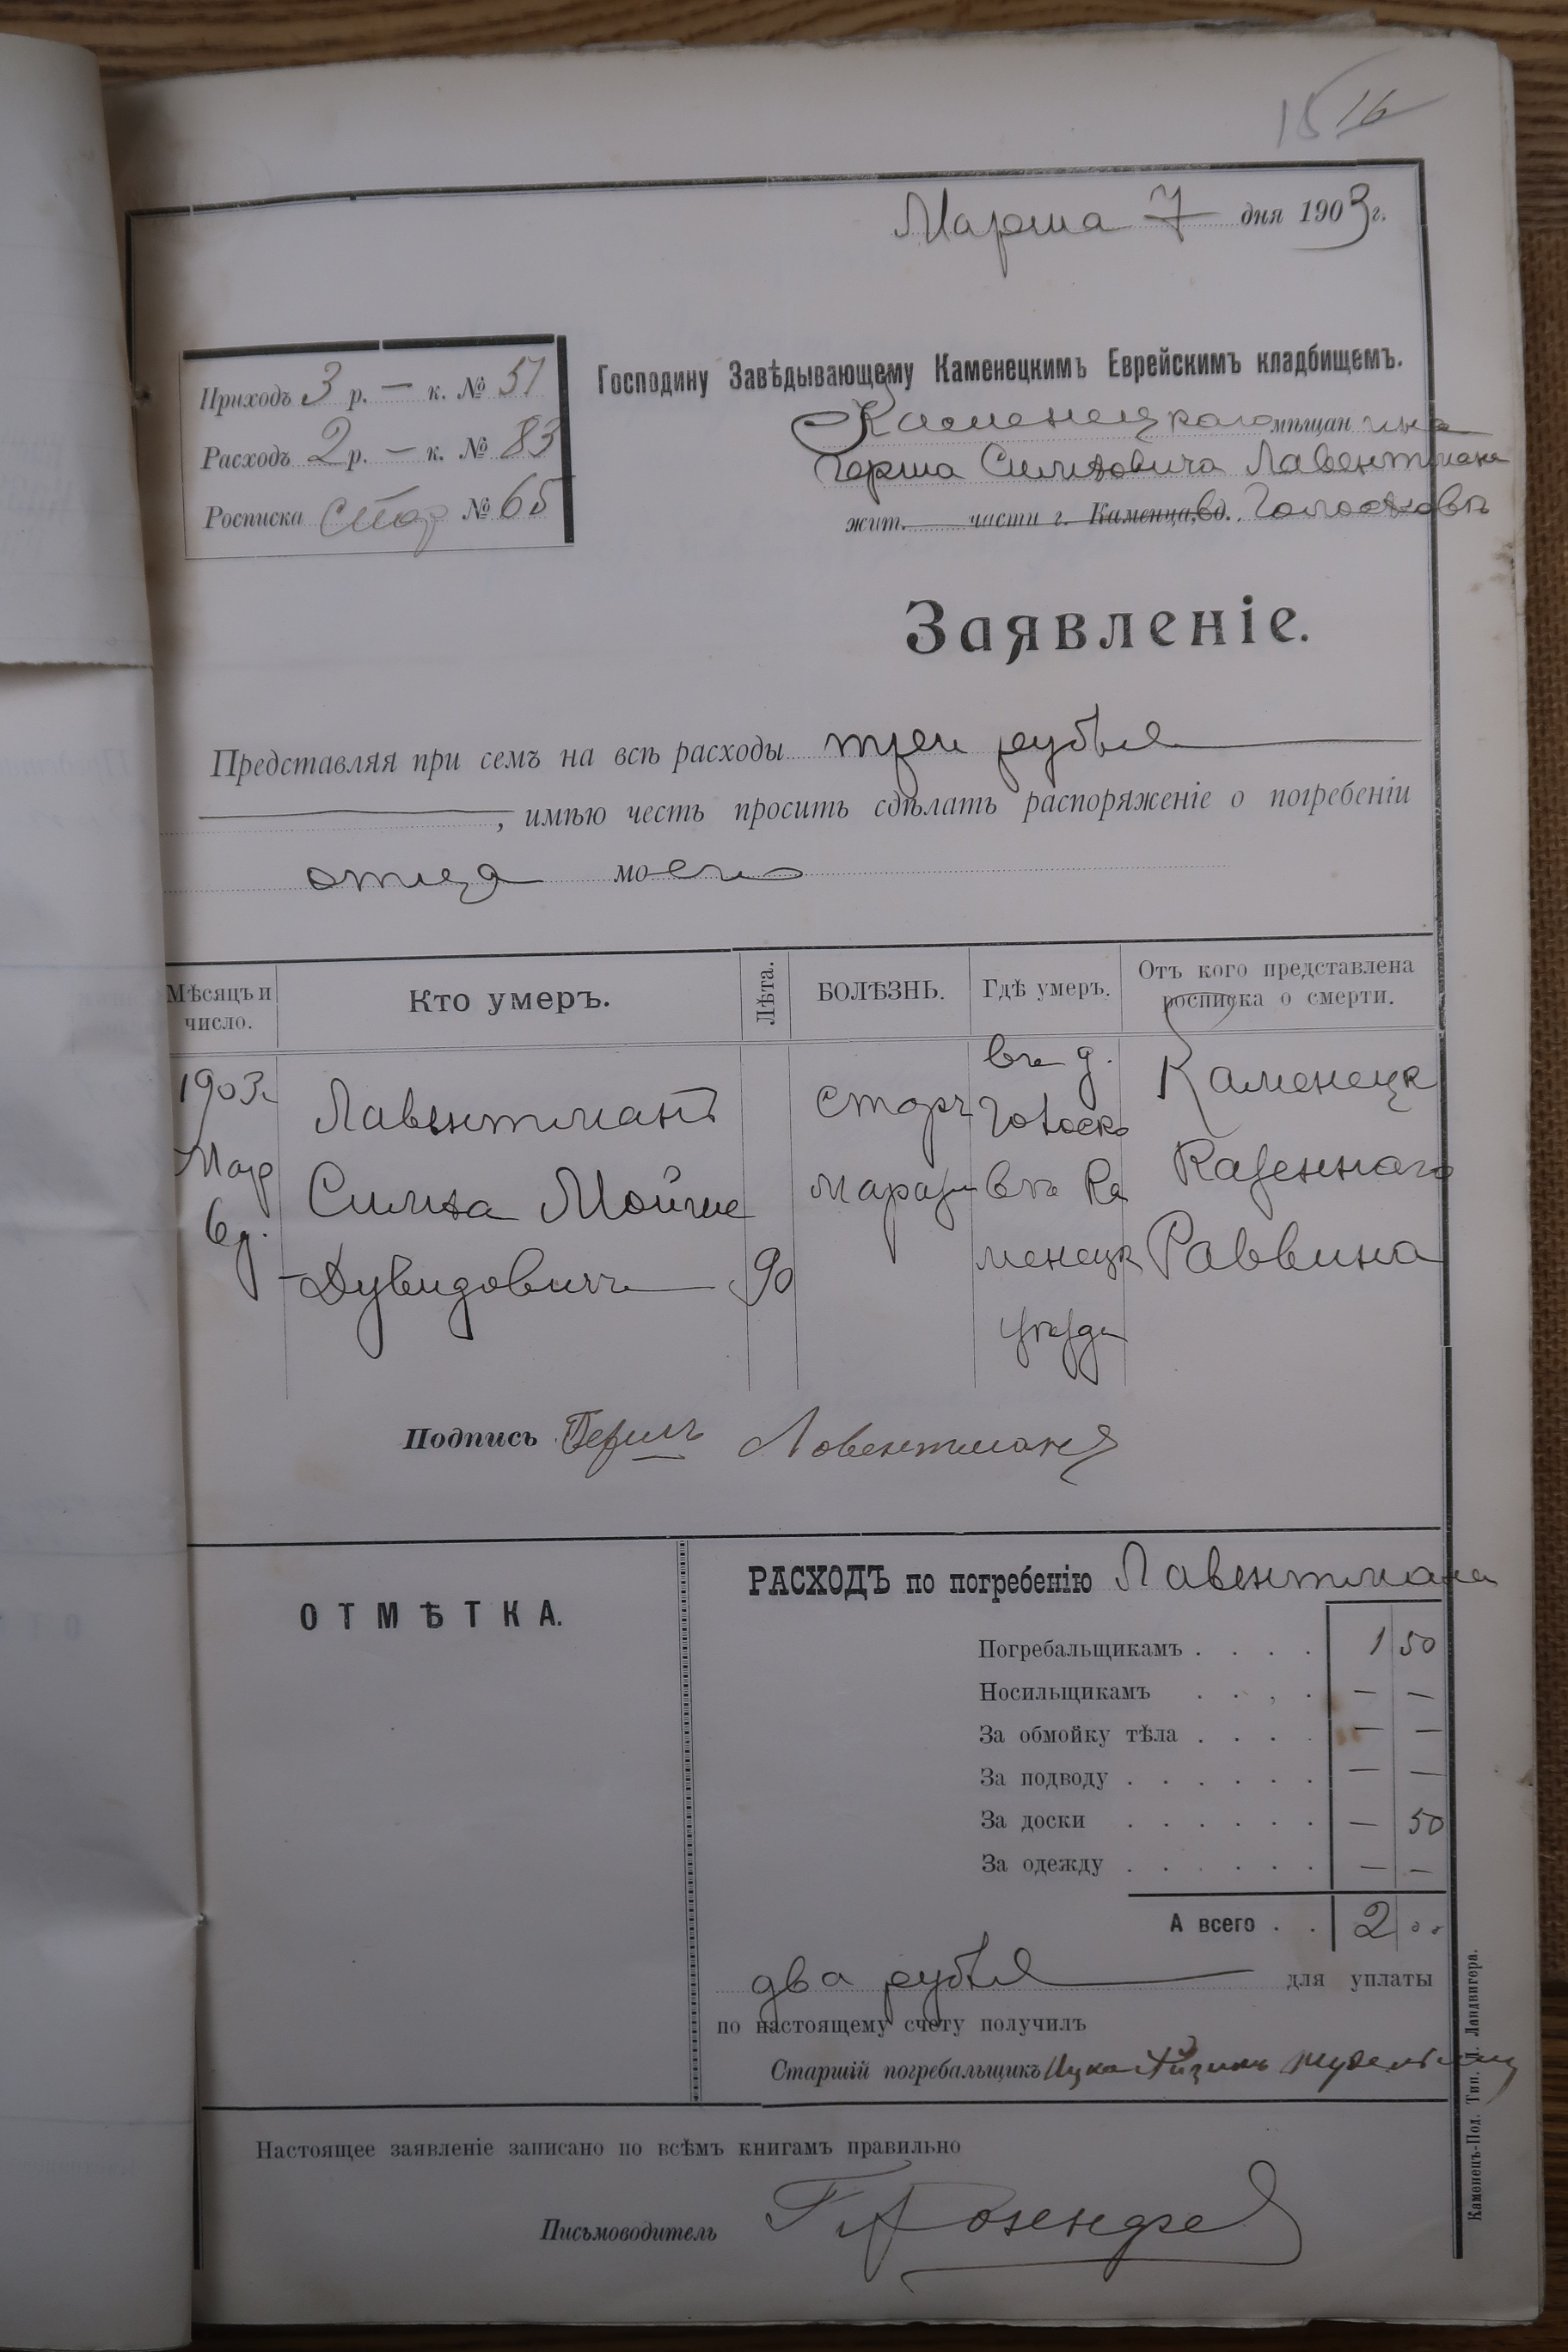 15 16
Марта 7 дня 1903 г.
Приходъ 3 р. — к. № 51
Расходъ 2 р. — к. № 83
Росписка стар № 65
Господину Завѣдывающему Каменецкимъ Еврейскимъ кладбищемъ.
Каменецкаго мѣщанина
Герша Симховича Лавентмана
жит. части г. Каменца, вд. Голосковъ
Заявленіе.
Представляя при семъ на всѣ расходы три рубля
, имѣю честь просить сдѣлать распоряженіе о погребеніи
отца моего
Мѣсяцъ и число. Кто умеръ. Лѣта. БОЛѢЗНЬ. Гдѣ умеръ. Отъ кого представлена росписка о смерти.
1903 Мар 6 д.
Лавентманъ
Симха Мойше
-Дувидовичъ
90
Старч
маразм
въ д.
Голоско
въ Ка
менецк
уѣзда
Каменецк
Казеннаго
Раввина
Подпись Гершъ Ловентманъ
ОТМѢТКА.
РАСХОДЪ по погребенію Лавентмана
Погребальщикамъ . . . . 1 50
Носильщикамъ . . . . — —
За обмойку тѣла . . . . — —
За подводу . . . . . . — —
За доски . . . . . . — 50
За одежду . . . . . . — —
А всего . . 2 00
два рубля для уплаты
по настоящему счету получилъ
Старшій погребальщикъ Ицко Айзикъ
Настоящее заявленіе записано по всѣмъ книгамъ правильно
Письмоводитель
Каменецъ-Под. Тип. Л. Ландвигера.